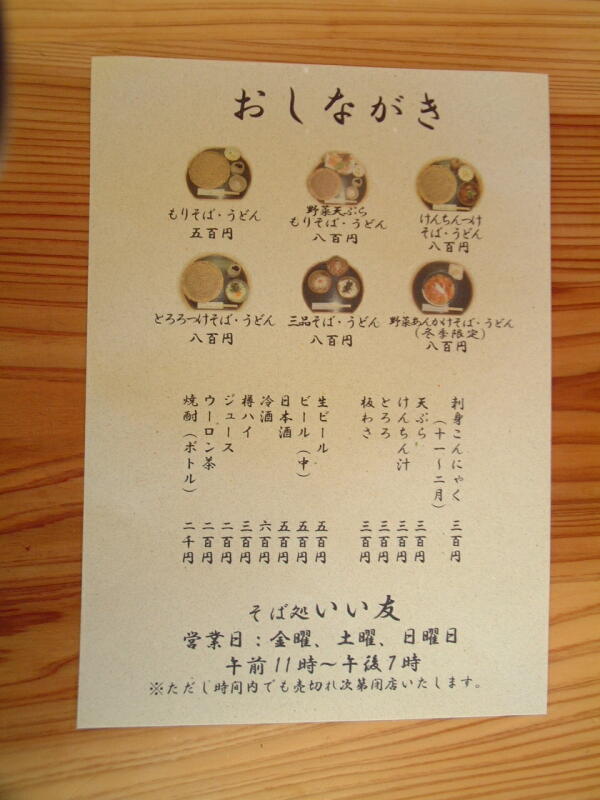 おしながき
もりそば・うどん
五百円
野菜天ぷら
もりそば・うどん
八百円
けんちんつけ
そば・うどん
八百円
とろろつけそば・うどん
八百円
三品そば・うどん
八百円
野菜あんかけそば・うどん
(冬季限定)
八百円
刺身こんにゃく 三百円
(十一～二月)
天ぷら 三百円
けんちん汁 三百円
とろろ 三百円
板わさ 三百円
生ビール 五百円
ビール(中) 五百円
日本酒 五百円
冷酒 六百円
樽ハイ 三百円
ジュース 二百円
ウーロン茶 二百円
焼酎(ボトル) 二千円
そば処いい友
営業日:金曜、土曜、日曜日
午前11時～午後7時
※ただし時間内でも売切れ次第閉店いたします。